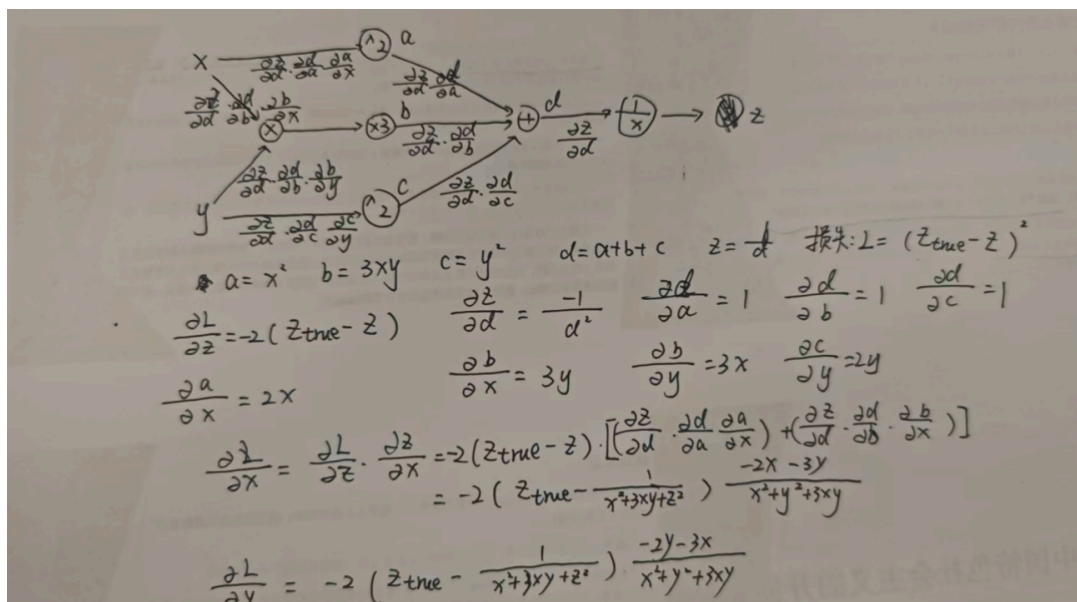 x ^2 a
∂z/∂d · ∂d/∂a · ∂a/∂x
∂z/∂d · ∂d/∂a
∂z/∂d · ∂d/∂b · ∂b/∂x
x ×3 b + d 1/x z
∂z/∂d · ∂d/∂b
∂z/∂d
∂z/∂d · ∂d/∂b · ∂b/∂y
y ^2 c
∂z/∂d · ∂d/∂c
∂z/∂d · ∂d/∂c · ∂c/∂y
a = x² b = 3xy c = y² d = a+b+c z = 1/d 损失: L = (Ztrue - Z)²
∂L/∂z = -2(Ztrue - Z) ∂z/∂d = -1/d² ∂d/∂a = 1 ∂d/∂b = 1 ∂d/∂c = 1
∂a/∂x = 2x ∂b/∂x = 3y ∂b/∂y = 3x ∂c/∂y = 2y
∂L/∂x = ∂L/∂z · ∂z/∂x = -2(Ztrue - z) · [(∂z/∂d · ∂d/∂a ∂a/∂x) + (∂z/∂d · ∂d/∂b · ∂b/∂x)]
= -2(Ztrue - 1/(x²+3xy+z²)) (-2x-3y)/(x²+y²+3xy)
∂L/∂y = -2(Ztrue - 1/(x²+3xy+z²)) · (-2y-3x)/(x²+y²+3xy)